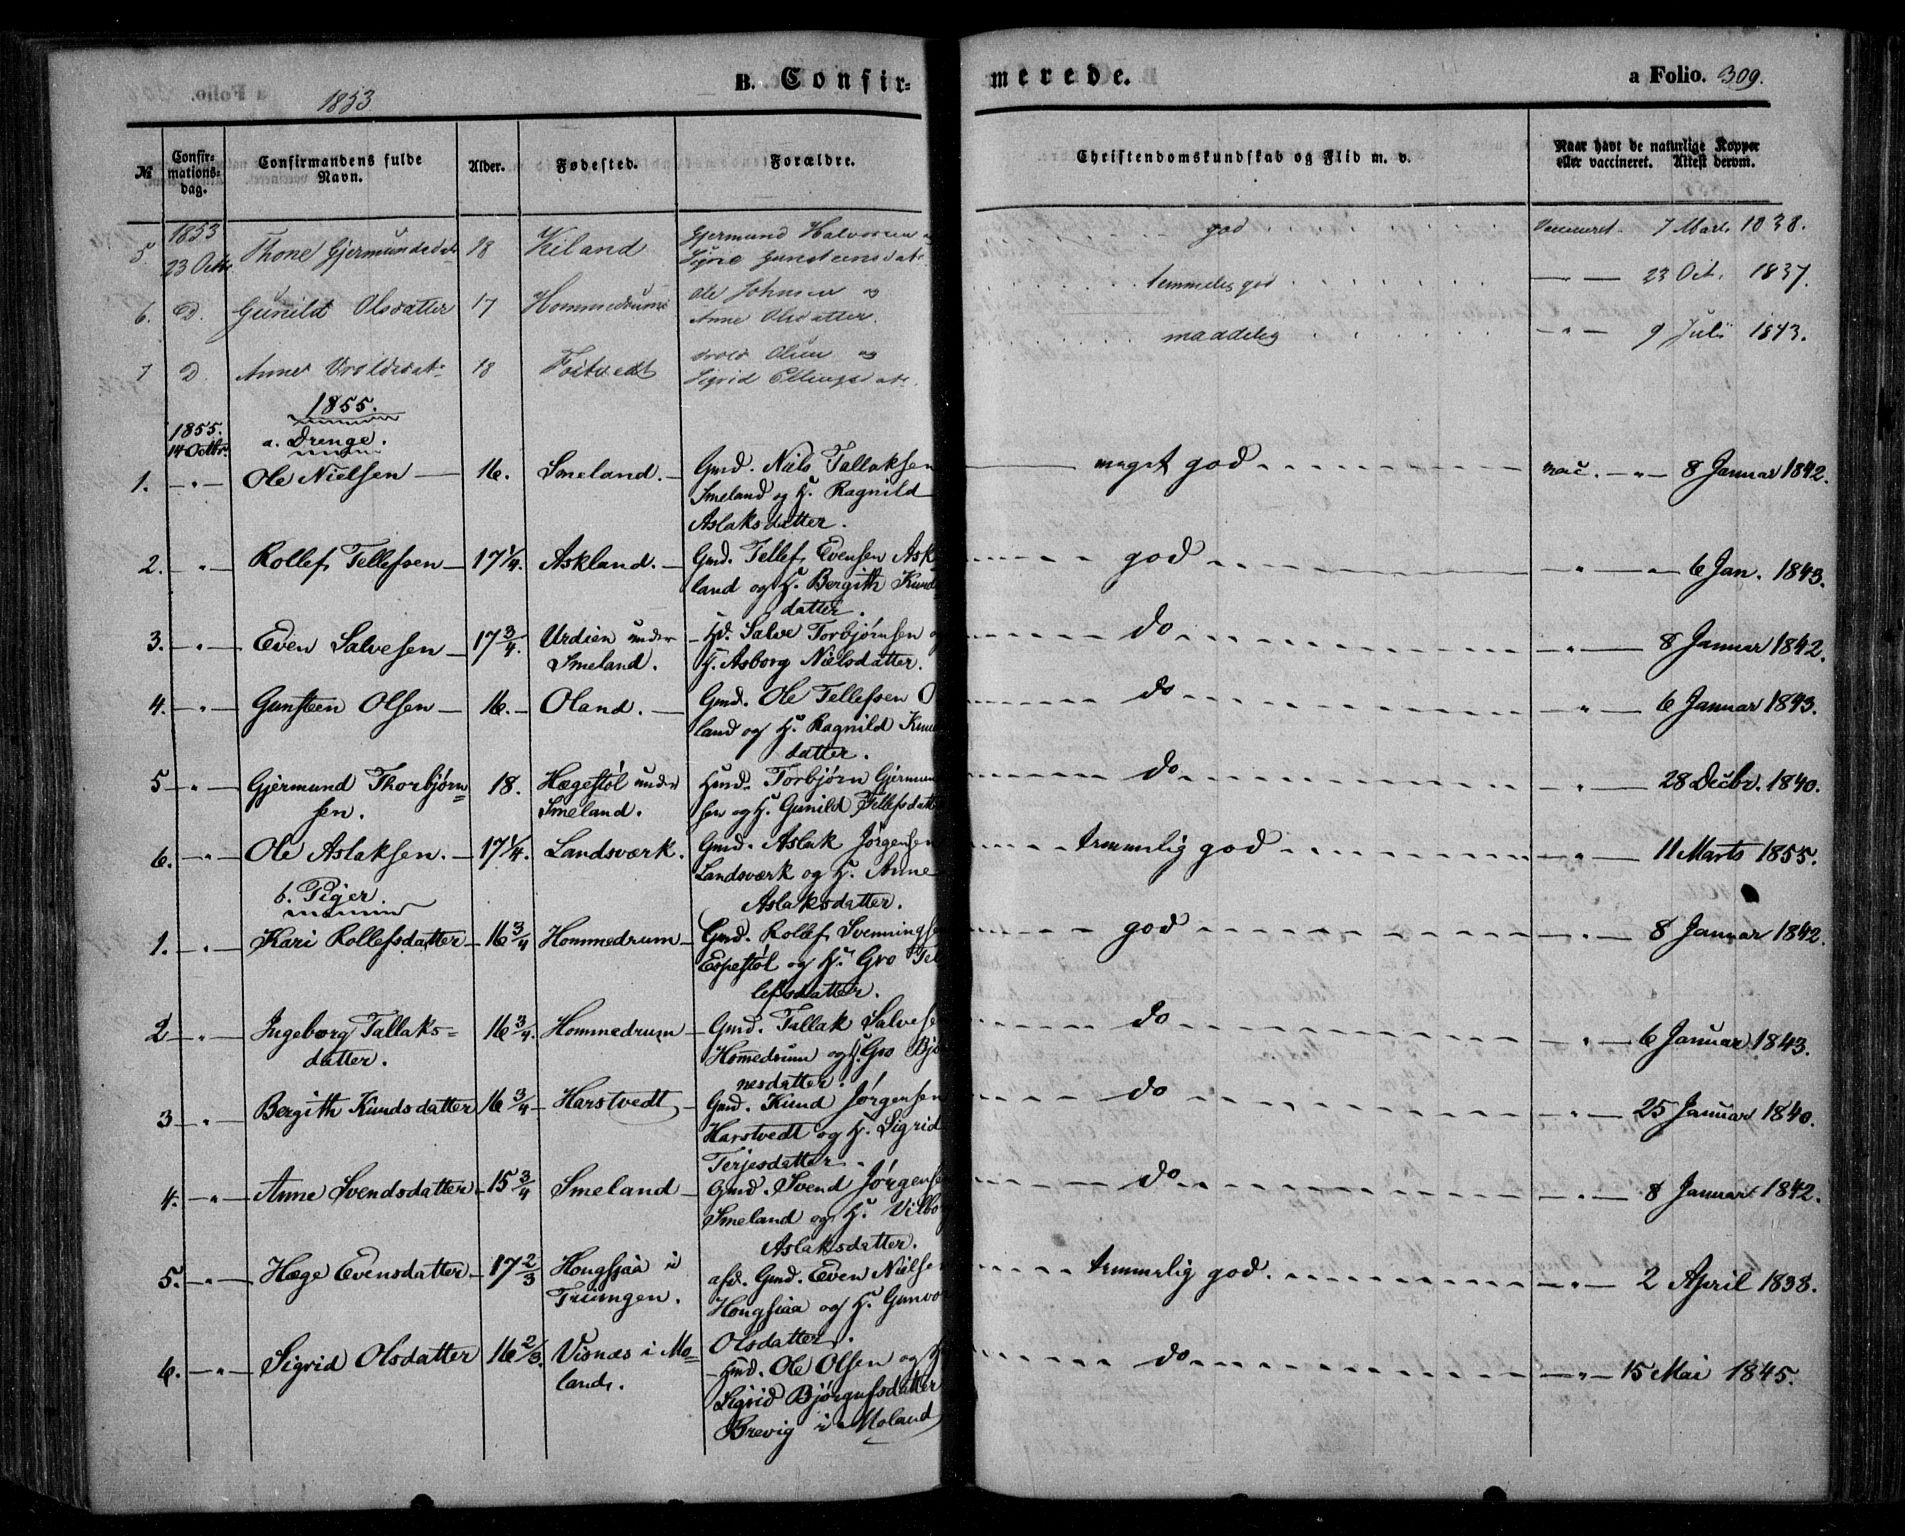 B. Confir-
merede.
a Folio. 309.
1853
№
Confir-
mations-
dag.
Confirmandens fulde
Navn.
Alder.
Fødested.
Forældre.
Christendomskundskab og Flid m. v.
Naar havt de naturlige Kopper
eller vaccineret. Attest derom.
1853
5. 23 Octbr Thone Gjermundsdat. 18 Kiland Gjermund Halvorsen og
Signe Gunsteensdat. god 7 Marts 1838.
6. D. Gunild Olsdatter 17 Hommedrum Ole Johnsen og
Anne Olsdatter. temmelig god 23 Oct. 1837.
7 D Anne Uroldsdat. 18 Foltvedt Urold Olsen og
Sigrid Ellingsdat. maadelig 9 Juli 1843.
1855.
1855.
14 Octbr.
a. Drenge.
1. -"- Ole Nielsen 16. Smeland. Gmd. Niels Tallaksen
Smeland og H. Ragnild
Aslaksdatter. meget god vac. -"- 8 Januar 1842.
2. -"- Rollef Tellefsen 17 1/4. Askland. Gmd. Tellef Evensen Ask
land og H. Bergith Knuds
datter. god " 6 Jan. 1843.
3. -"- Even Salvesen 17 3/4. Urdien under
Smeland. Hd. Salve Torbjørnsen og
H. Asborg Nielsdatter. do " 8 Januar 1842.
4. -"- Gunsteen Olsen 16. Oland. Gmd. Ole Tellefsen O
land og H. Ragnild Knuds
datter. do " 6 Januar 1843.
5 -"- Gjermund Thorbjørn=
sen. 18. Hægestøl under
Smeland. Hmd. Torbjørn Gjermun
sen og H. Gunild Tellefsdatt do " 28 Decbr. 1840.
6. -"- Ole Aslaksen. 17 1/4. Landsværk. Gmd. Aslak Jørgensen
Landsværk og H. Anne
Aslaksdatter. temmelig god " 11 Marts 1855.
b. Piger.
1. -"- Kari Rollefsdatter 16 3/4 Hommedrum Gmd. Rollef Svenningse
Espestøl og H. Gro Tel
lefsdatter. god " 8 Januar 1842.
2 -"- Ingeborg Tallaks=
datter. 16 3/4. Hommedrum Gmd. Tallak Salvese
Homedrum og H. Gro Bjø
nesdatter. do " 6 Januar 1843.
3 -"- Bergith Knudsdatter 16 3/4 Harstvedt Gmd. Knud Jørgensen
Harstvedt og H. Sigrid
Terjesdatter. do " 25 Januar 1840.
4. -"- Anne Svendsdatter 15 3/4 Smeland Gmd. Svend Jørgense
Smeland og H. Vilbo
Aslaksdatter. do " 8 Januar 1842.
5. -"- Hæge Evensdatter 17 2/3 Hongsjaa i
Triungen. afd. Gmd. Even Nielse
Hongsjaa og H. Gunvo
Olsdatter. temmelig god. " 2 April 1838.
6. -"- Sigrid Olsdatter 16 2/3. Visnæs i Mo=
land. Hmd. Ole Olsen og H
Sigrid Bjørgufsdatter
Brevig i Moland do " 15 Mai 1845.